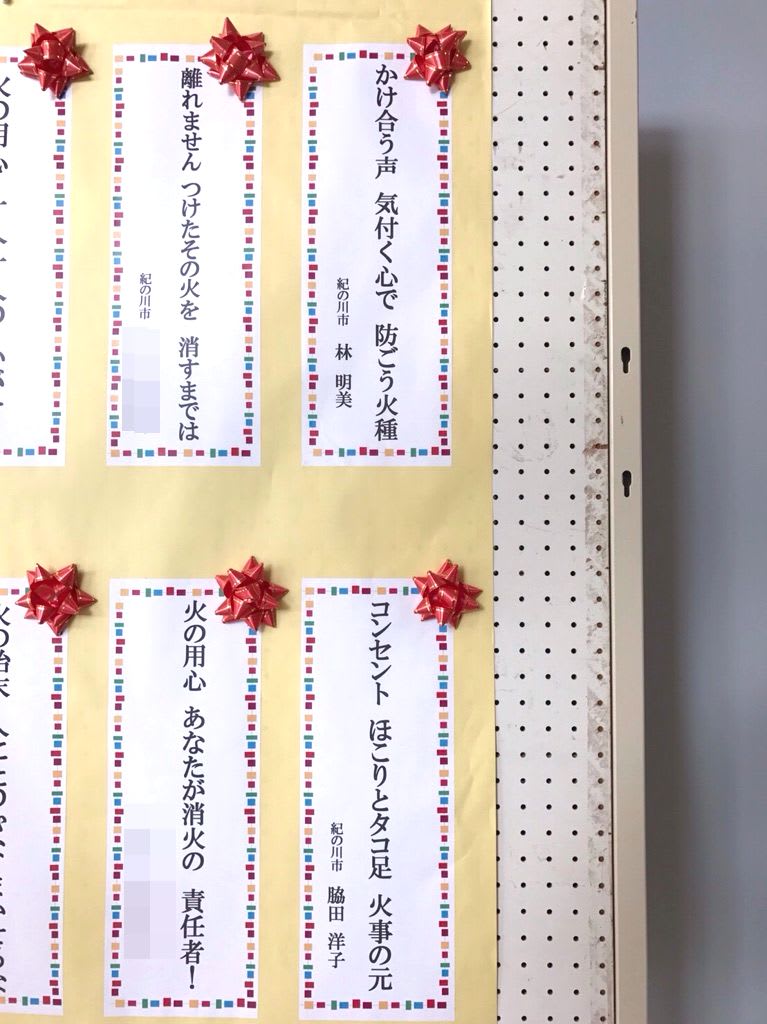 かけ合う声 気付く心で 防ごう火種
紀の川市 林 明美
離れません つけたその火を 消すまでは
紀の川市
コンセント ほこりとタコ足 火事の元
紀の川市 脇田 洋子
火の用心 あなたが消火の 責任者!